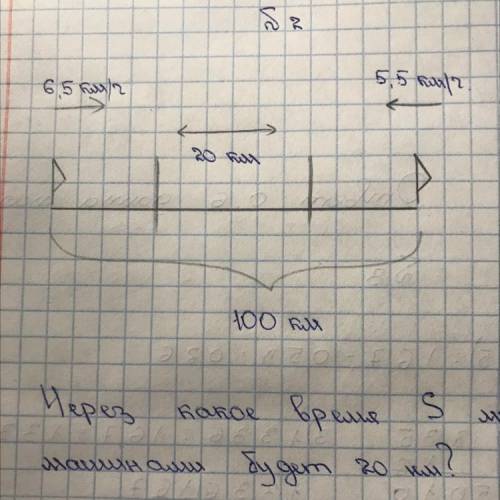 № 2
6,5 км/ч
5,5 км/ч
20 км
100 км
Через какое время S м
машинами будет 20 км?